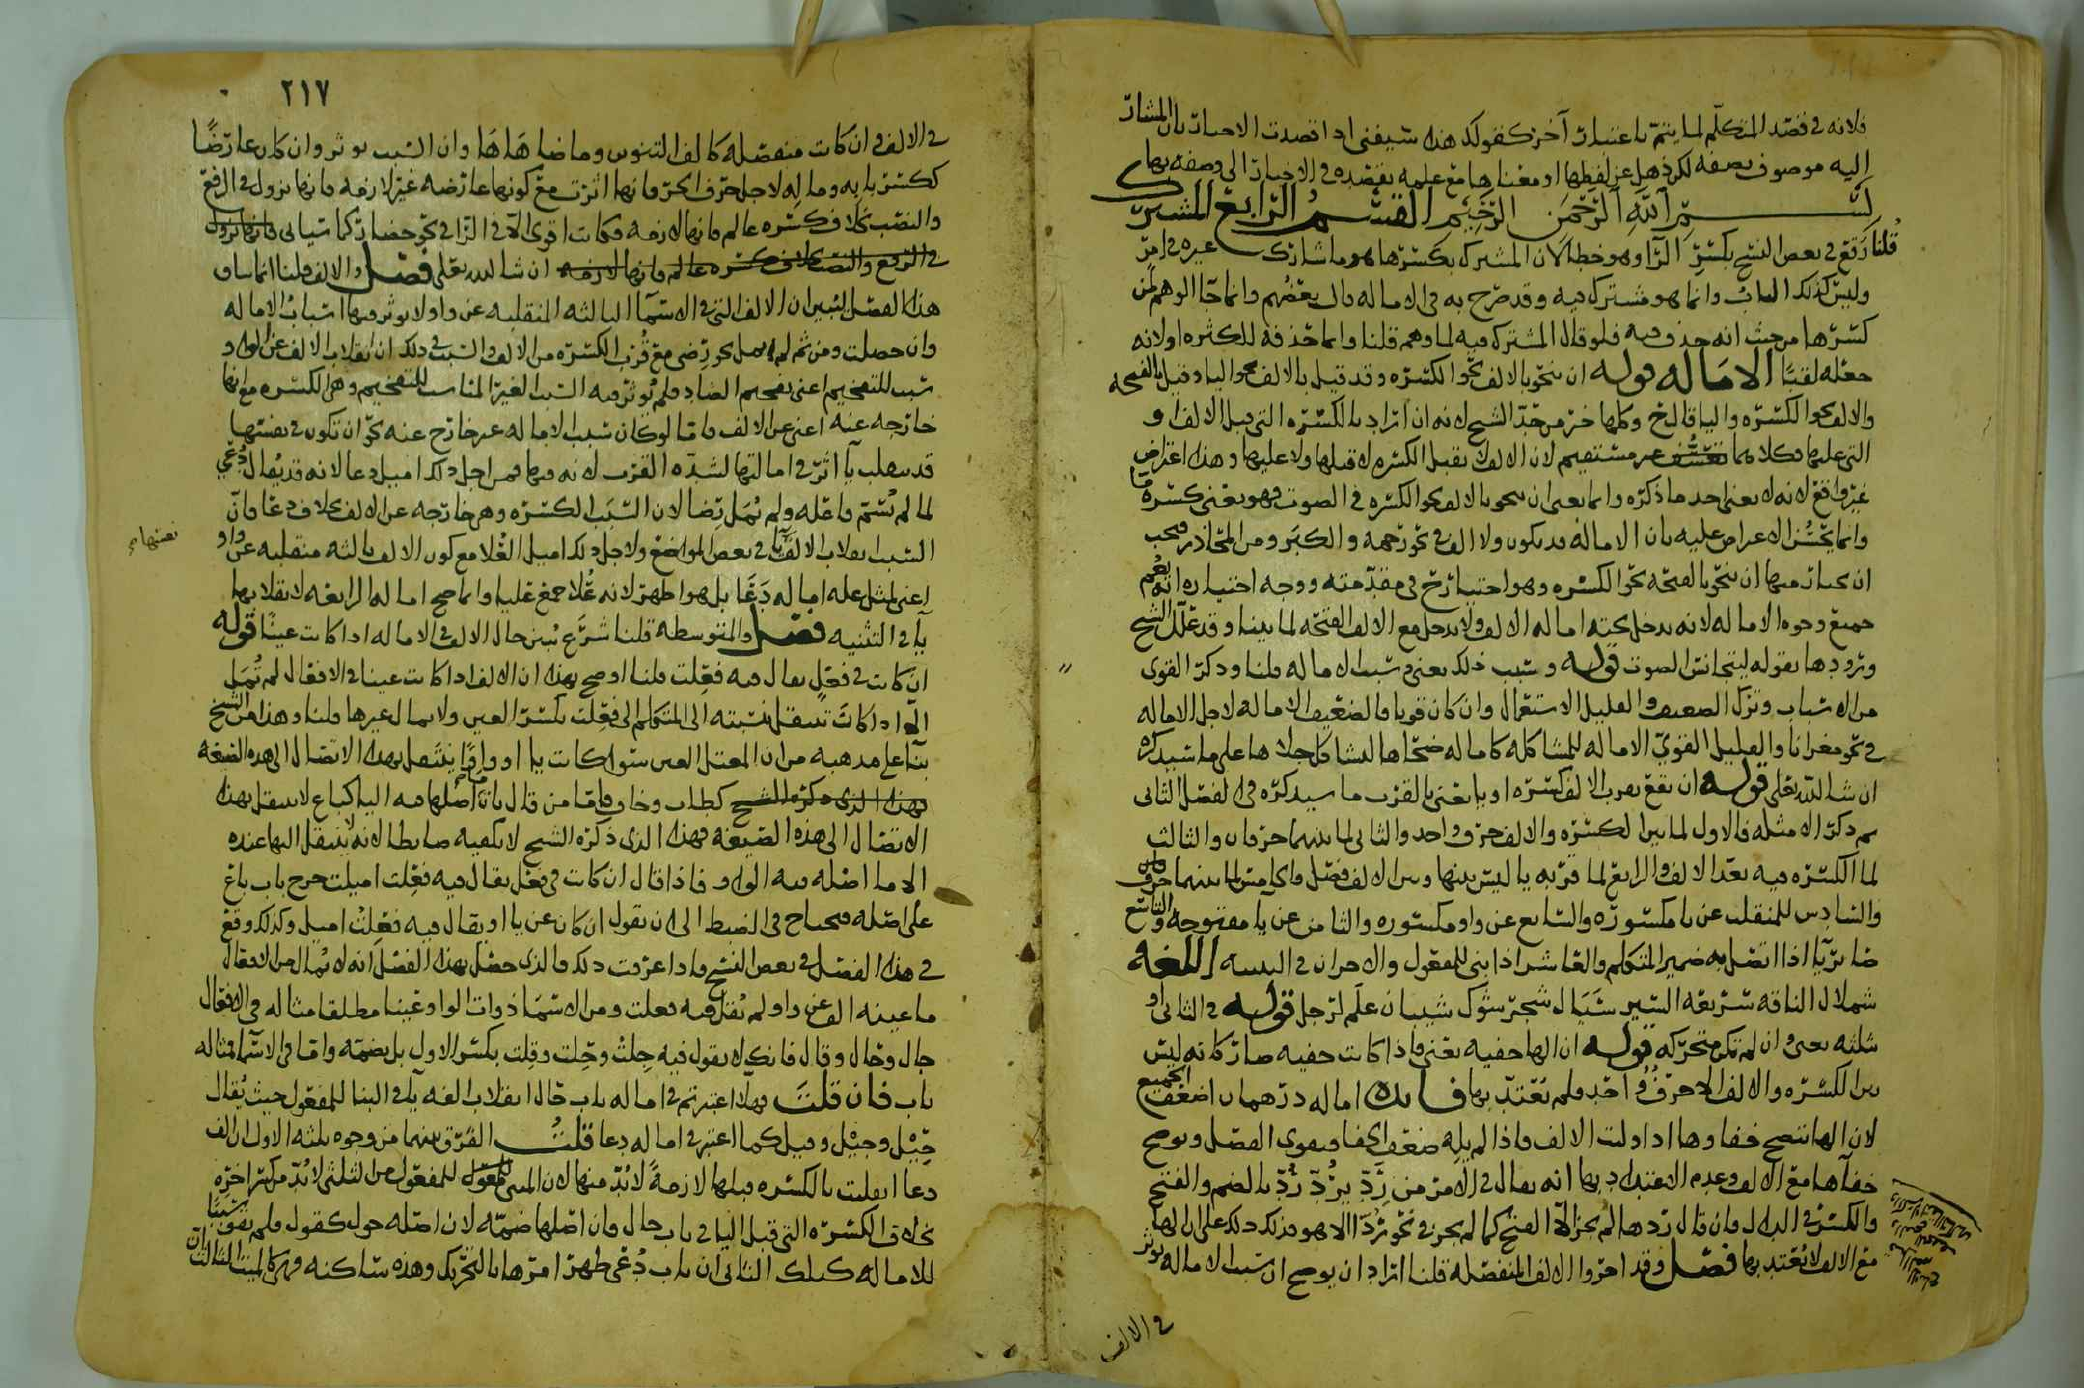 فلانه في قصد المتكلم لما يتم باعتبار آخر كقولك هذه سيفني اذا قصدت الاخبار بان المشار
اليه موصوف بصفه لكن ذهل عن لفظها او معناها مع علمه بقصده في الاخبار الى وصفه بها
بسم الله الرحمن الرحيم القسم الرابع المشترك
قلنا وقع في بعض النسخ بكسر الراء وهو خطا لان المشترك بكسرها هو ما شارك غيره في امر
وليس كذلك الباب وانما هو مشترك فيه وقد صرح به في الاماله قال بعضهم وانما جا الوهم لمن
كسرها من حيث انه حذف فيه فلو قال المشترك فيه لما وهم قلنا وانما حذفه للكثره او لانه
جعله لقبا الاماله قوله ان ينحو بالالف نحو الكسره وقد قيل بالالف نحو اليا وقيل بالفتحه
والالف نحو الكسره واليا قال خ وكلها خير من حد الشيخ لانه ان اراد بالكسره التي قبل الالف او
التي عليها فكلاهما غير مستقيم لان الالف لا تقبل الكسره لا قبلها ولا عليها وهذا اعتراض
غير واقع لانه لا يعني احد ما ذكره وانما يعني ان ينحو بالالف نحو الكسره في الصوت فهو يعني كسرة ما
وانما يحسن الاعتراض عليه بان الاماله قد تكون ولا الف في نحو رحمه والكبر ومن المحاذر فيجب
ان يختار فيها ان ينحو بالفتحه نحو الكسره وهو اختيار خ في مقدمته ووجه اختياره انه يعم
جميع وجوه الاماله لانه يدخل تحته اماله الالف ولا تدخل مع الالف الفتحه لما بينا وقد علل الشيخ
ورودها بقوله ليتجانس الصوت قوله وسبب ذلك يعني سبب الاماله قلنا وذكر القوي
من الاسباب وترك الضعيف والقليل الاستعمال وان كان قويا فالضعيف الاماله لاجل الاماله
في نحو مغرانا والقليل القوي الاماله للمشاكله كاماله ضحاها لتشاكل جلاها على ما سيذكره
ان شا الله تعلى قوله ان تقع بقرب الالف كسره او يا يعني بالقرب ما سيذكره في الفصل الثاني
ثم ذكر الامثله فالاول لما بين الكسره والالف حرف واحد والثاني لما بينهما حرفان والثالث
لما الكسره فيه بعد الالف والرابع لما قربه يا ليس بينها وبين الالف فصل والخامس لما بينهما حرف
والسادس للمنقلب عن يا مكسوره والسابع عن واو مكسوره والثامن عن يا مفتوحه والتاسع
صائر يا اذا اتصل به ضمير المتكلم والعاشر اذا بني للمفعول والاخران في التثنيه اللغه
شملال الناقه سريعه السير سيال شجر شوك شيبان علم لرجل قوله في الثاني او
ثلثه يعني وان لم تكن متحركه قوله ان الها خفيه يعني فاذا كانت خفيه صار كانه ليس
بين الكسره والالف الا حرف واحد ولم يعتد بها فائده اماله درهمان اضعف الجميع
لان الها تتضح خفاوها اذا وليت الالف فاذا لم يله ضعف الخفا فيقوى الفصل ويوضح
خفآها مع الالف وعدم الاعتداد بها انه يقال في الامر من رد يرد رد بالضم والفتح
والكسر في الدال وان قال ردها لم يجز الا الفتح كما لم يجز في نحو ردا الا هو فدل ذلك على ان الها
مع الالف لا يعتد بها فصل وقد اجروا الالف المنفصله قلنا اراد ان يوضح ان سبب الاماله يوثر
في الالف
٢١٧
في الالف ان كانت منفصله كالف التنوين وما ضاهاها وان السبب يوثر وان كان عارضا
ككسر بابه وماله لاجل حرف الجر فانها اثرت مع كونها عارضه غير لازمه فانها تزول في الرفع
والنصب بخلاف كسره عالم فانها لازمه وكانت اقوى الا في الرا في نحو حضار كما سياتي فانها تزول
في الرفع والنصب بخلاف كسره عالم فانها لازمه ان شا الله تعلى فصل والالف قلنا انما ساق
هذا الفصل ليبين ان الالف التي في الاسماء الثالثه المنقلبه عن واو لا يوثر فيها اسباب الاماله
وان حصلت ومن ثم لم يمل نحو رضى مع قرب الكسره من الالف والسبب في ذلك ان انقلاب الالف عن الواو
سبب للتفخيم اعني تفخيم الضاد فلم يوثر فيه السبب الغير المناسب للتفخيم وهي الكسره مع انها
خارجه عنه اعني عن الالف فاما لو كان سبب الاماله غير خارج عنه نحو ان تكون في نفسها
قد تقلب يا اثر في امالتها لشده القرب لانه فيها فمن اجل ذلك اميل دعا لانه قد يقال دعي
لما لم يسم فاعله ولم تمل رضا لان السبب الكسره وهي خارجه عن الالف بخلاف دعا فان
السبب انقلاب الالف يا في بعض المواضع ولاجل ذلك اميل العلا مع كون الالف ثالثه منقلبه عن واو
نفسها
اعني لمثل عله اماله دعا بل هو اظهر لانه علا جمع عليا وانما صح اماله الرابعه لانقلابها
يا في التثنيه فصل والمتوسطه قلنا شرع يبين حال الالف في الاماله اذا كانت عينا قوله
ان كانت في فعل يقال فيه فعلت قلنا اوضح بهذا ان الالف اذا كانت عينا في الافعال لم تمل
الا اذا كانت تنتقل بنسبته الى المتكلم الى فعلت بكسر العين ولا يمال غيرها قلنا وهذا من الشيخ
بنا على مذهبه من ان المعتل العين سوا كانت يا او واوا ينتقل بهذا الاتصال الى هذه الصيغه
فهذا الذي ذكره الشيخ كطاب وخاف فاما من قال بان ما اصلها فيه اليا كباع لا ينتقل بهذا
الاتصال الى هذه الصيغه فهذا الذي ذكره الشيخ لا يكفيه ضابطا لانه لا ينتقل اليها عنده
الا ما اصله فيه الواو فاذا قال ان كانت في فعل يقال فيه فعلت اميلت خرج باب باع
على اصله فيحتاج في الضبط الى ان نقول ان كان عن يا او يقال فيه فعلت اميل وكذلك وقع
في هذا الفصل في بعض النسخ واذا عرفت ذلك فالذي حصل بهذا الفصل انه لا يمال من الافعال
ما عينه الف عن واو لم يقل فيه فعلت ومن الاسما ذوات الواو عينا مطلقا مثاله في الافعال
جال وحال وقال فانك لا تقول فيه جلت وحلت وقلت بكسر الاول بل بضمه واما في الاسما فمثاله
باب فان قلت فهلا اعتبرتم في اماله باب حال انقلاب الفه يآ في البنا للمفعول حيث يقال
حيل وجيل وقيل كما اعتبر في اماله دعا قلت الفرق بينهما من وجوه ثلثه الاول ان الف
دعا انقلبت بالكسره قبلها لازمة لا بد منها لان المبني للمفعول من الثلثي لا بد من كسر اخره
بخلاف الكسره التي قبل اليا في باب حال وان اصلها ضمه لان اصله حول كقول ولم تقو سببا
للاماله كتلك الثاني ان باب دعي ظهر امرها بالتحريك وهذه ساكنه فهي كالميت الثالث ان